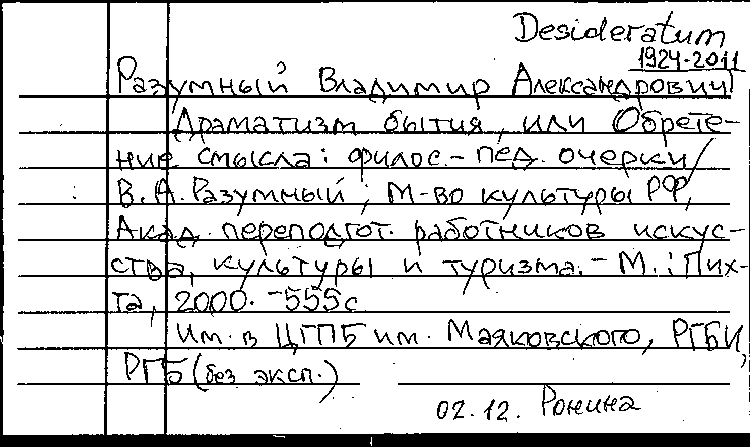 Desideratum
1924-2011
Разумный Владимир Александрович
Драматизм бытия, или Обрете-
ние смысла: филос.-пед. очерки /
В.А. Разумный; М-во культуры РФ,
Акад. переподгот. работников искус-
ства, культуры и туризма. - М.: Пих-
та, 2000. - 555с
Им. в ЦГПБ им. Маяковского, РГБИ,
РГБ (без эксп.)
02.12. Ронина